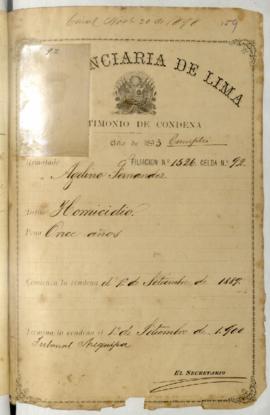 159
92
NCIARIA DE LIMA
TIMONIO DE CONDENA
Año de 1893 Cumplió
FILIACION N.º 1526 CELDA N.º 92
Fernandez
Homicidio.
Pena Once años
Comienza la condena el 1º de Setiembre de 1889.
Termina la condena el 1º de Setiembre de 1900
Tribunal Arequipa
EL SECRETARIO